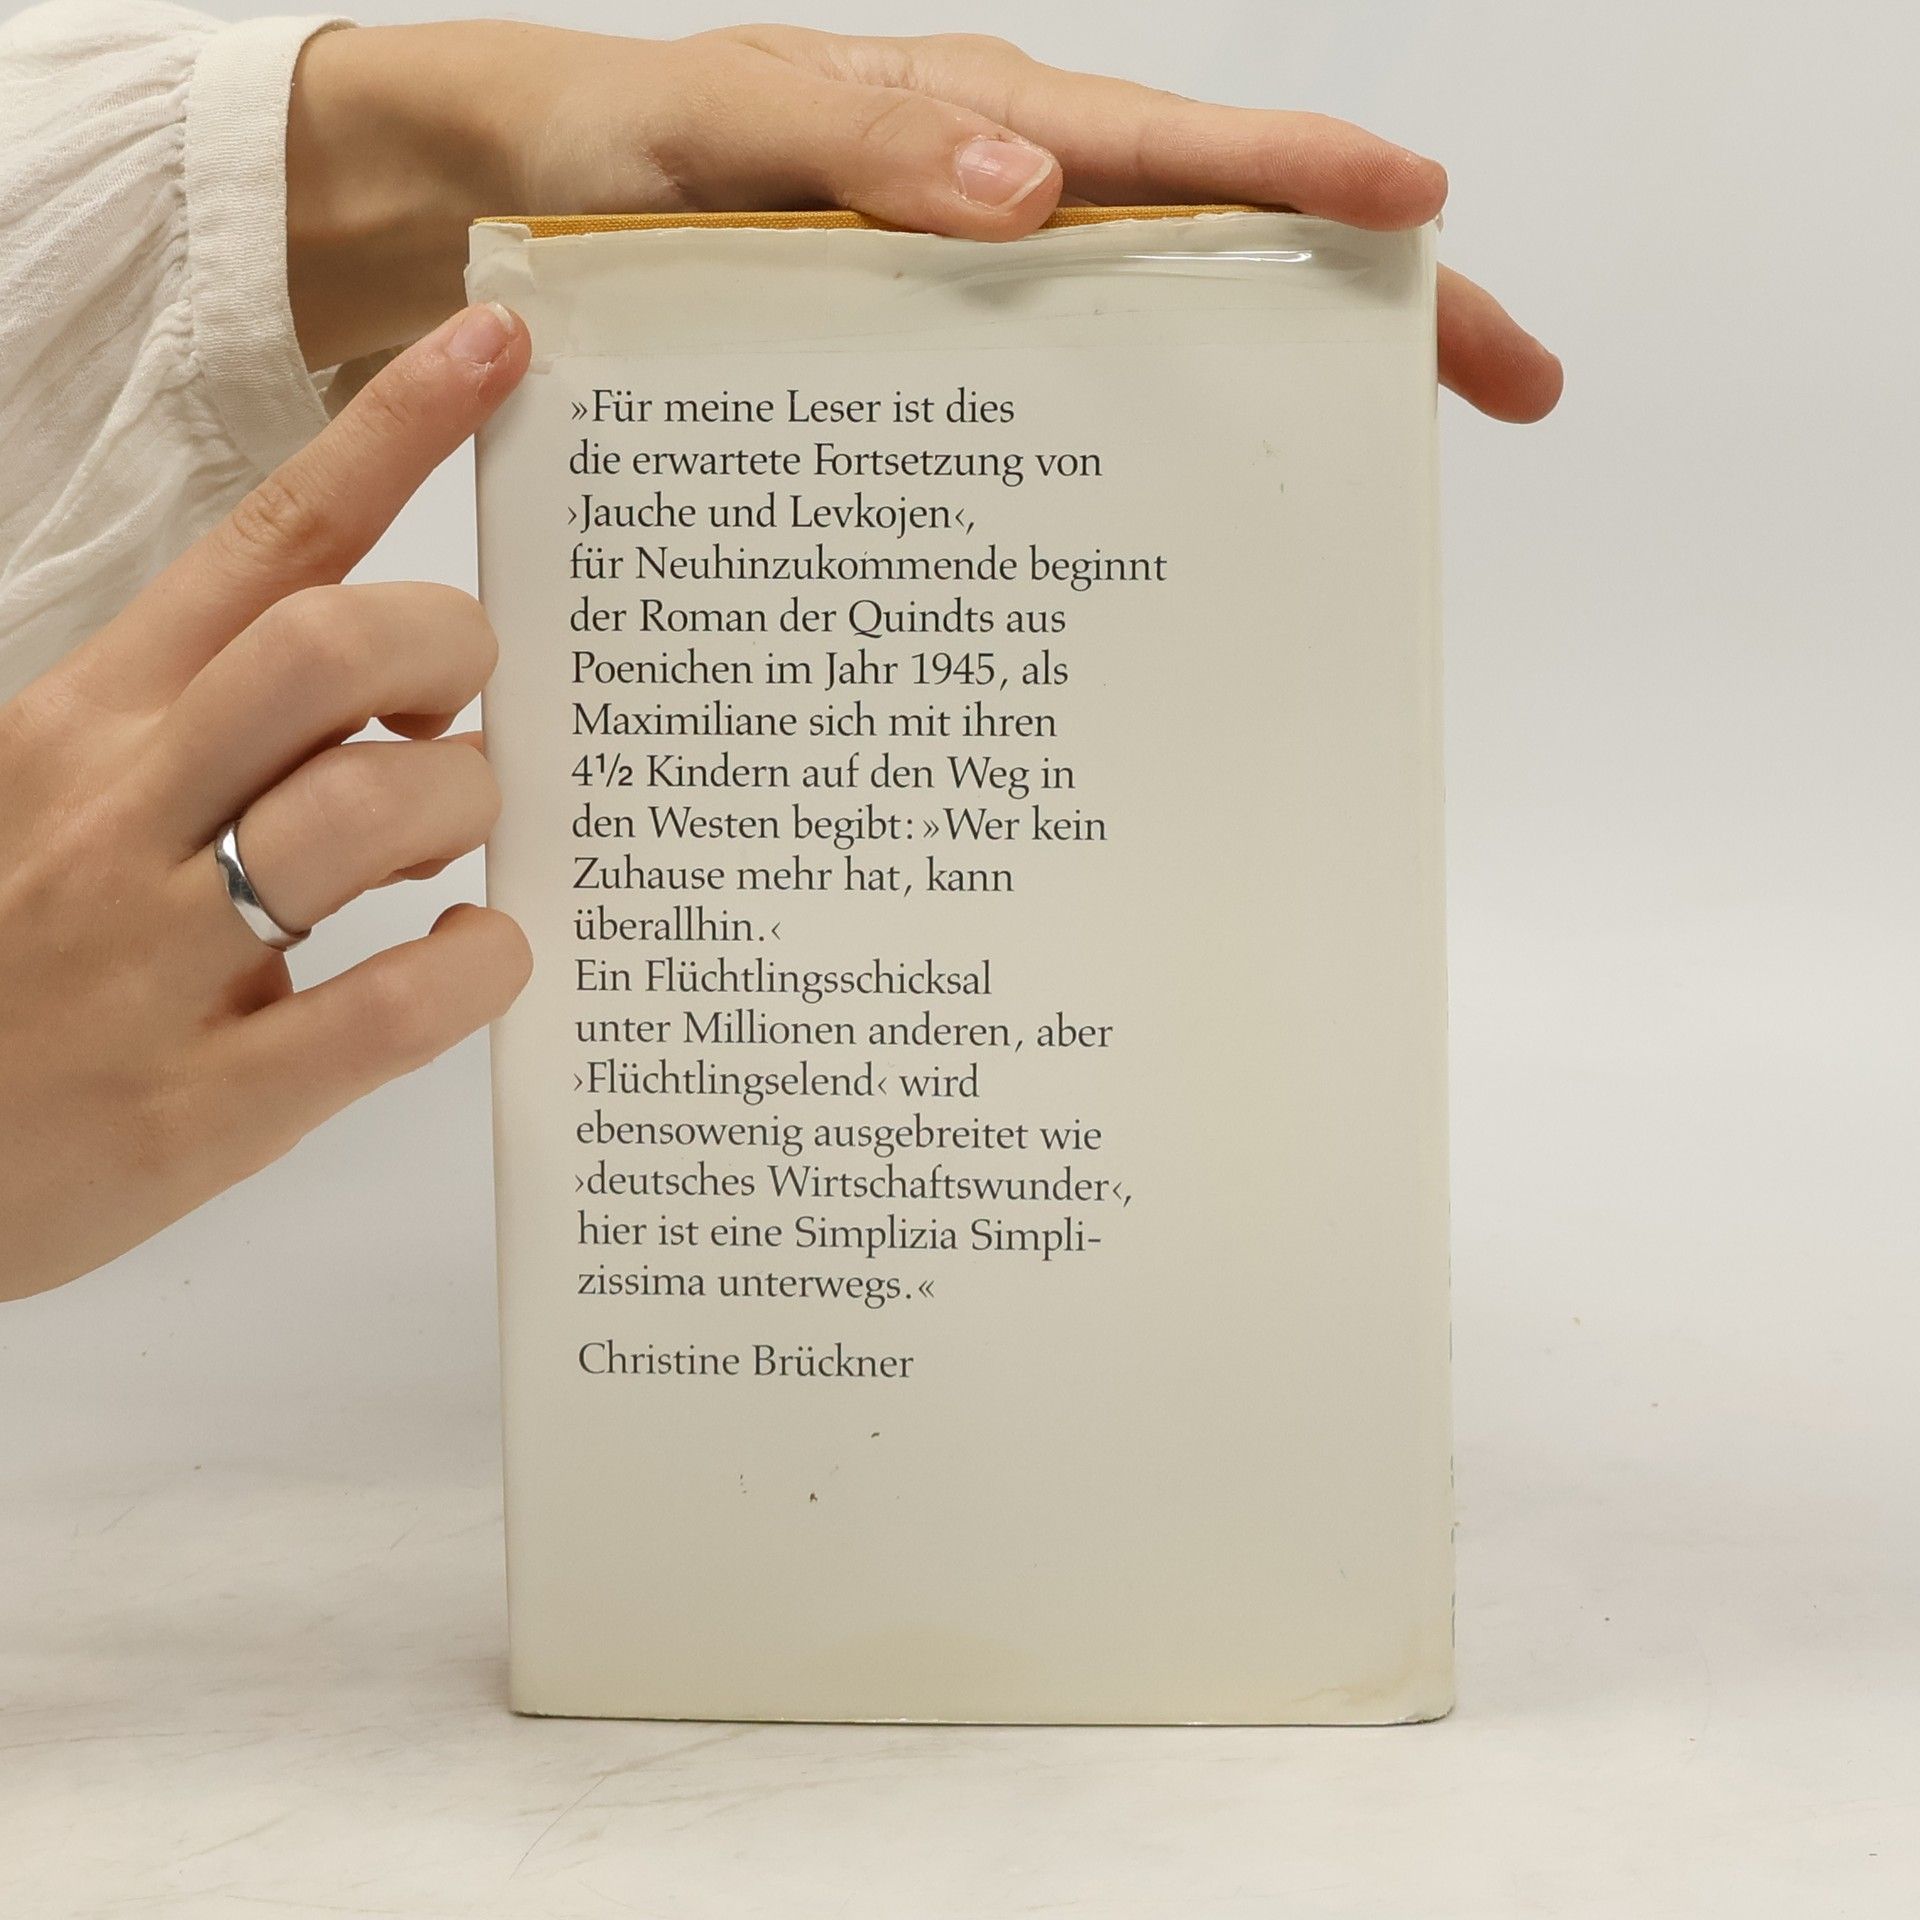 »Für meine Leser ist dies
die erwartete Fortsetzung von
›Jauche und Levkojen‹,
für Neuhinzukommende beginnt
der Roman der Quindts aus
Poenichen im Jahr 1945, als
Maximiliane sich mit ihren
4½ Kindern auf den Weg in
den Westen begibt: »Wer kein
Zuhause mehr hat, kann
überallhin.‹
Ein Flüchtlingsschicksal
unter Millionen anderen, aber
›Flüchtlingselend‹ wird
ebensowenig ausgebreitet wie
›deutsches Wirtschaftswunder‹,
hier ist eine Simplizia Simpli-
zissima unterwegs.«
Christine Brückner